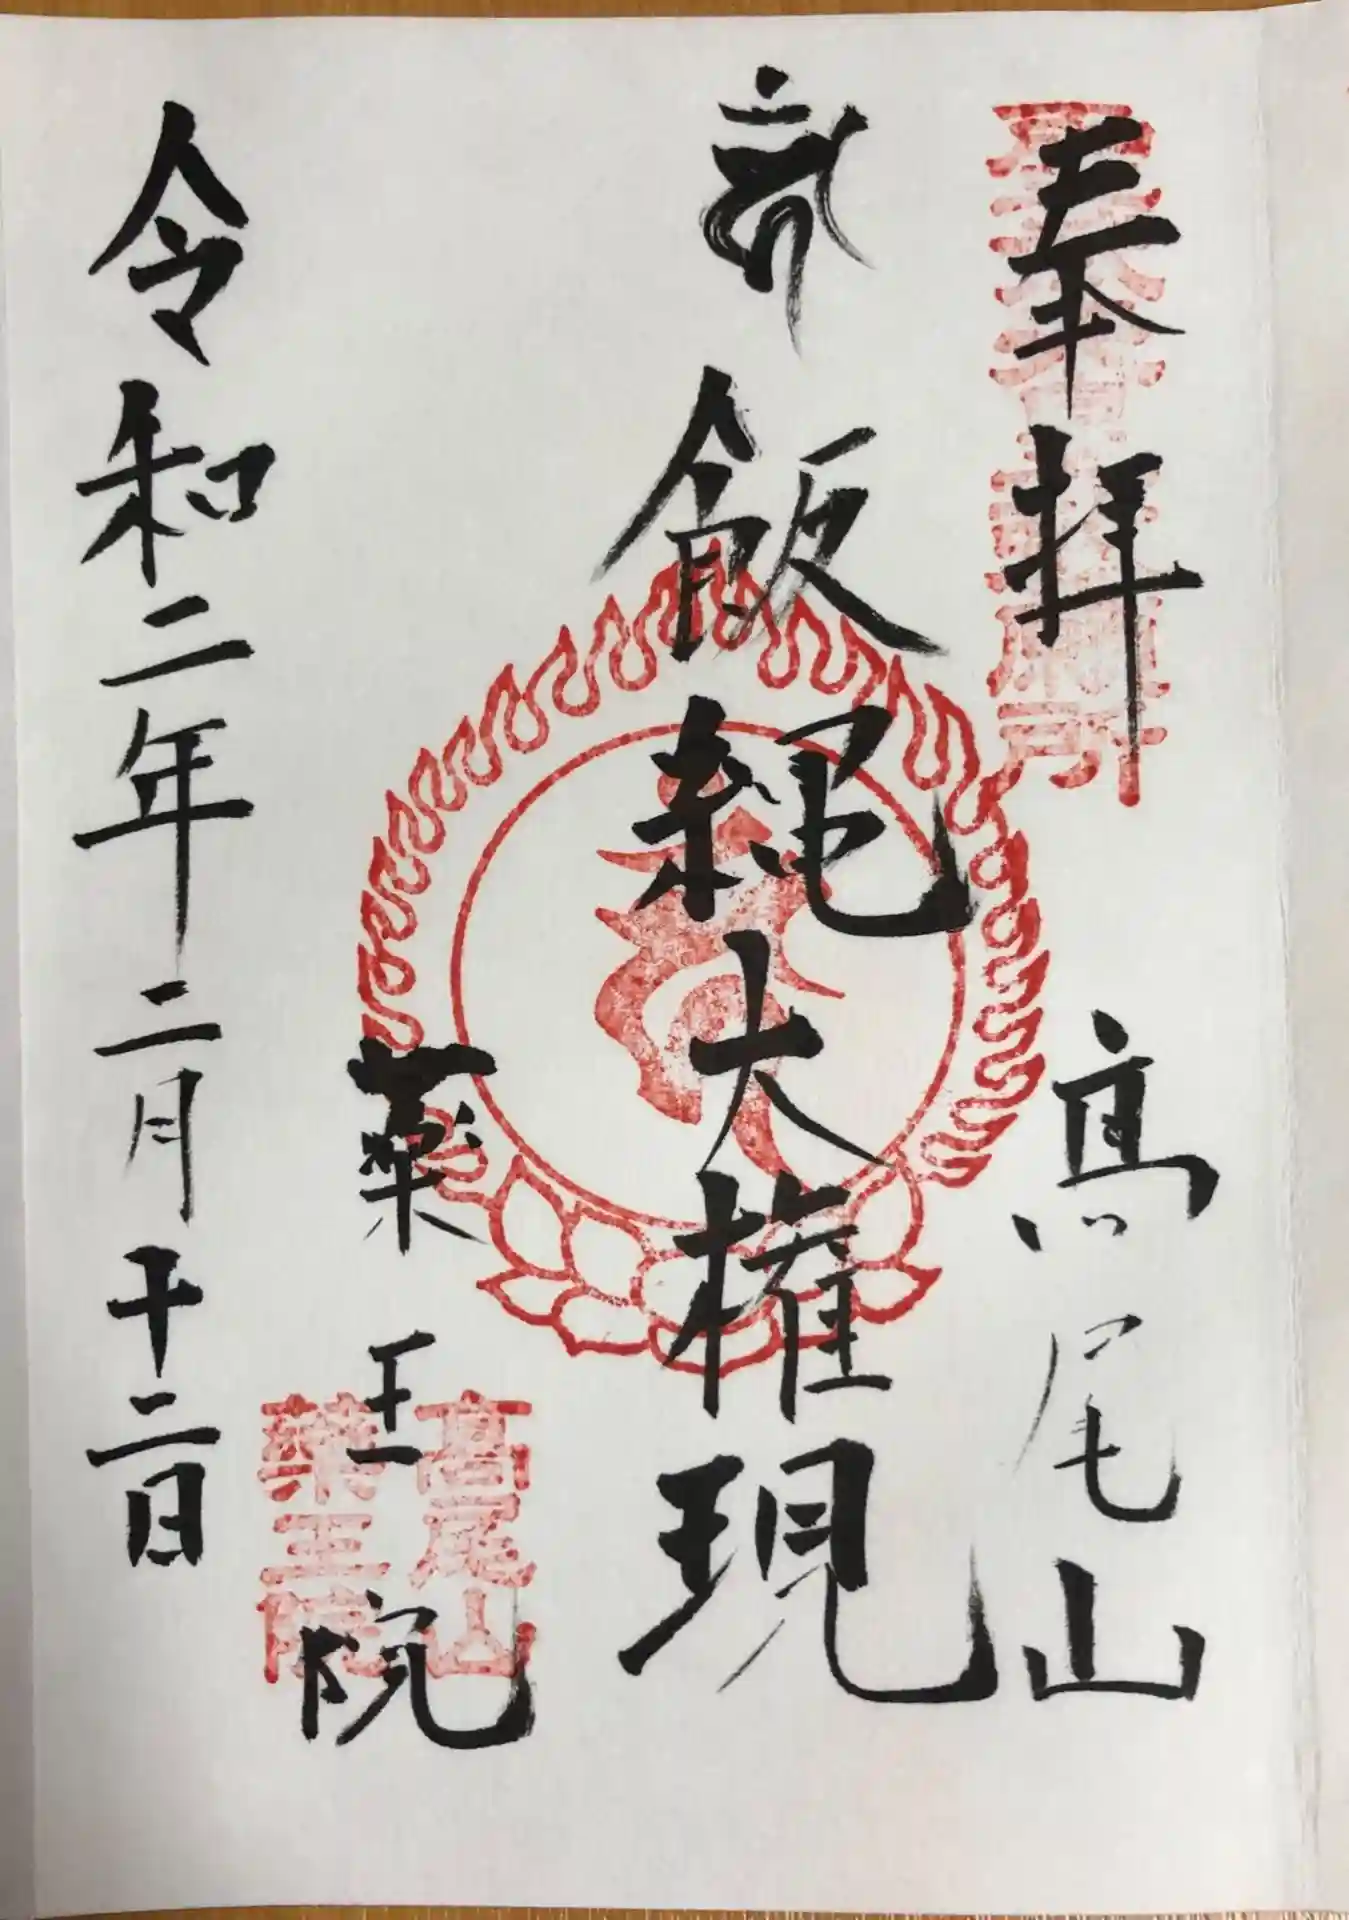 奉拝
髙尾山
飯縄大権現
薬王院
髙尾山
薬王院
令和二年二月十二日